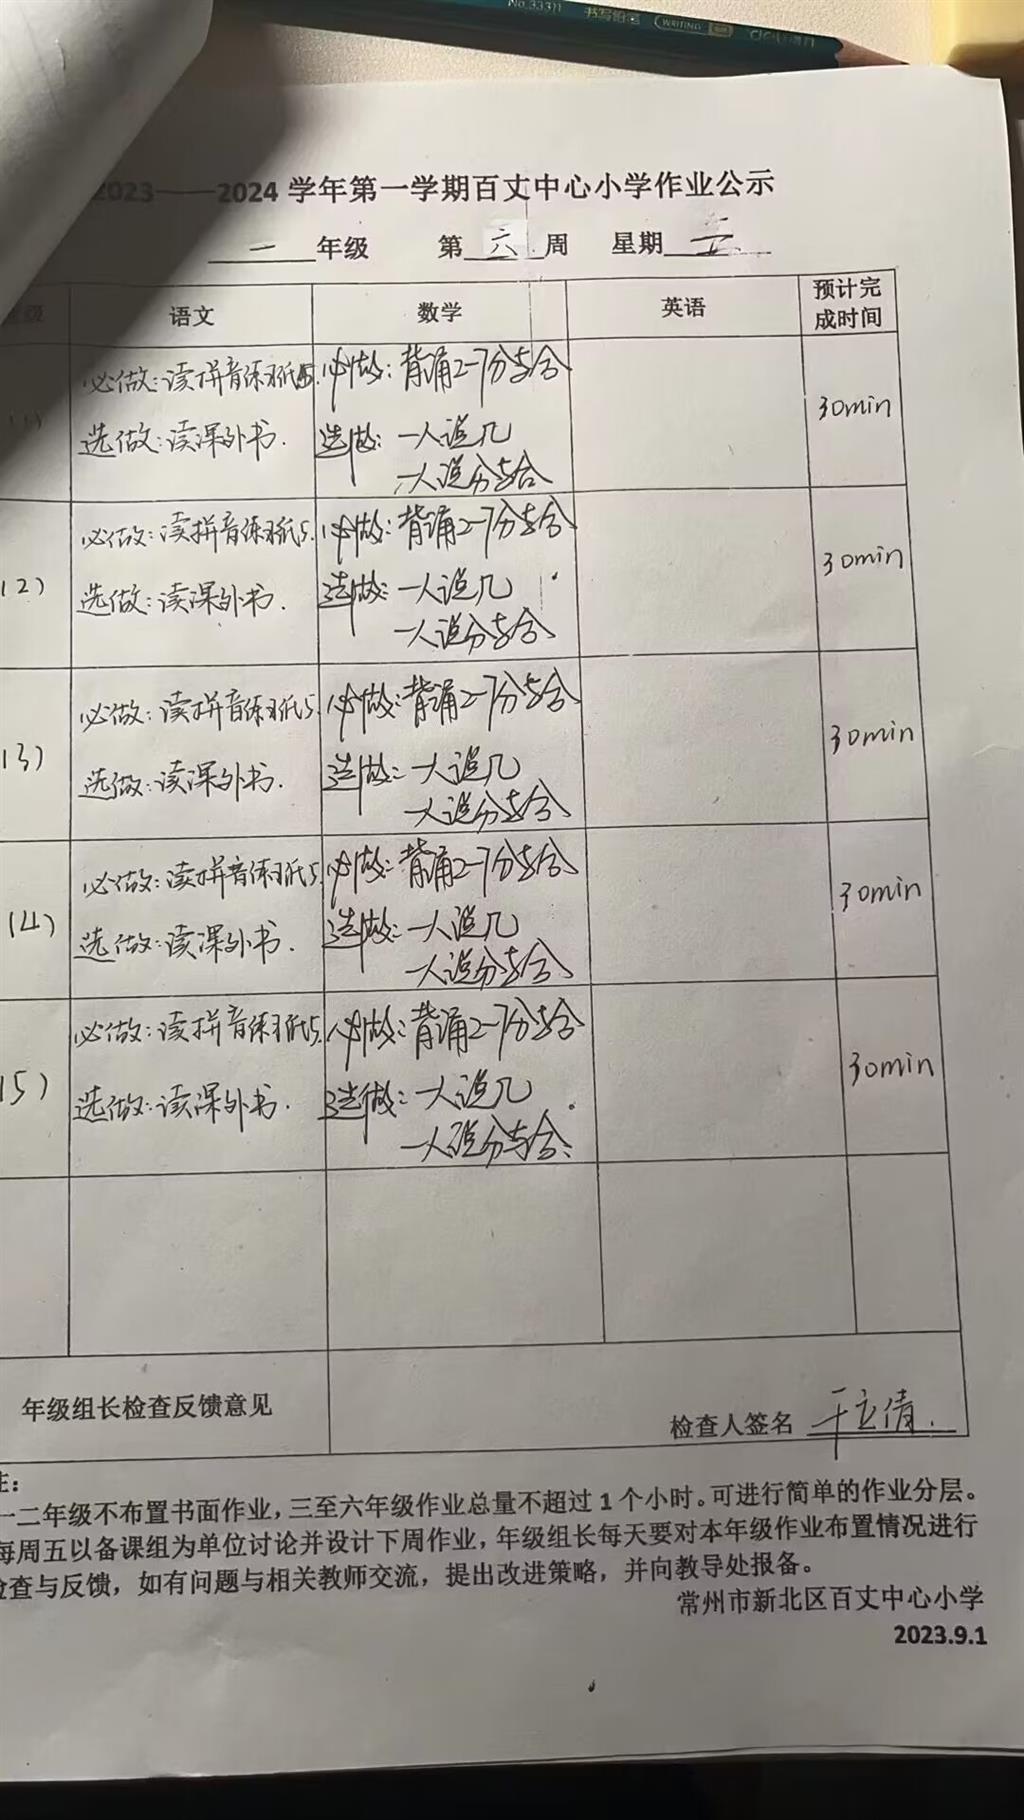 No.33311 书写铅笔 WRITING
2023——2024 学年第一学期百丈中心小学作业公示
一 年级 第 六 周 星期 五
级 语文 数学 英语 预计完成时间
(1) 必做:读拼音练习纸5. 必做:背诵2-7分与合 30min
选做:读课外书. 选做:一人说几
一人说分与合
(2) 必做:读拼音练习纸5. 必做:背诵2-7分与合 30min
选做:读课外书. 选做:一人说几
一人说分与合
(3) 必做:读拼音练习纸5. 必做:背诵2-7分与合 30min
选做:读课外书. 选做:一人说几
一人说分与合
(4) 必做:读拼音练习纸5. 必做:背诵2-7分与合 30min
选做:读课外书. 选做:一人说几
一人说分与合
(5) 必做:读拼音练习纸5. 必做:背诵2-7分与合 30min
选做:读课外书. 选做:一人说几
一人说分与合.
年级组长检查反馈意见 检查人签名 于立倩.
注:
一二年级不布置书面作业，三至六年级作业总量不超过 1 个小时。可进行简单的作业分层。
每周五以备课组为单位讨论并设计下周作业，年级组长每天要对本年级作业布置情况进行
检查与反馈，如有问题与相关教师交流，提出改进策略，并向教导处报备。
常州市新北区百丈中心小学
2023.9.1